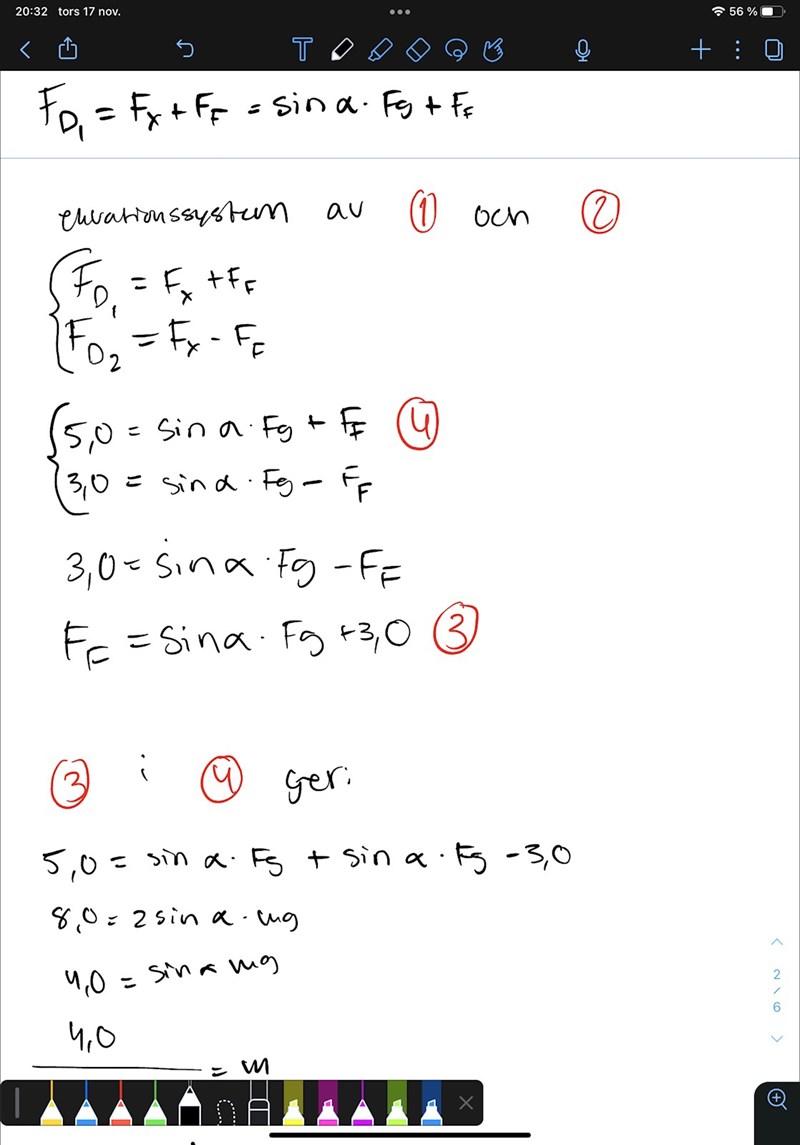 20:32 tors 17 nov. 56 %
F_D₁ = Fₓ + F_F = sin α · Fg + F_F
ekvationssystem av ① och ②
F_D₁ = Fₓ + F_F
F_D₂ = Fₓ - F_F
5,0 = sin α · Fg + F_F ④
3,0 = sin α · Fg - F_F
3,0 = sin α · Fg - F_F
F_F = sin α · Fg + 3,0 ③
③ i ④ ger:
5,0 = sin α · Fg + sin α · Fg - 3,0
8,0 = 2 sin α · mg
4,0 = sin α mg
4,0
= m
2
/
6